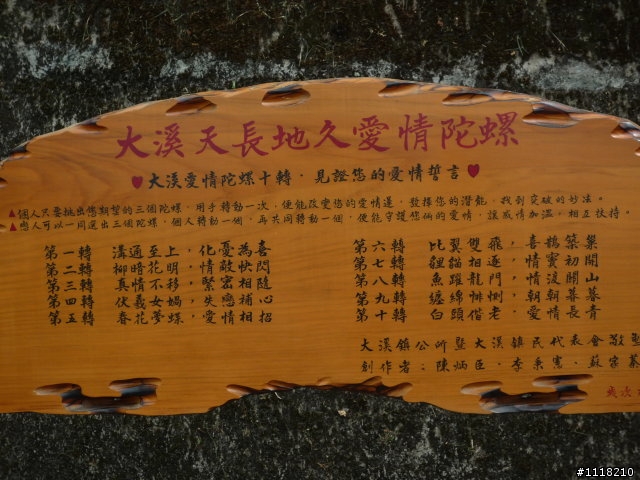 大溪天長地久愛情陀螺
大溪愛情陀螺十轉．見證您的愛情誓言
▲個人只要挑出您期望的三個陀螺，用手轉動一次，便能改變您的愛情運，發揮您的潛能，找到突破的妙法。
▲戀人可以一同選出三個陀螺，個人轉動一個，再共同轉動一個，便能守護您倆的愛情，讓感情加溫，相互扶持。
第一轉 溝通至上，化憂為喜
第二轉 柳暗花明，情敵快閃
第三轉 真情不移，緊密相隨
第四轉 伏羲女媧，失戀補心
第五轉 春花夢蝶，愛情相招
第六轉 比翼雙飛，喜鵲築巢
第七轉 貍貓相逐，情竇初開
第八轉 魚躍龍門，情渡關山
第九轉 纏綿悱惻，朝朝暮暮
第十轉 白頭偕老，愛情長青
大溪鎮公所暨大溪鎮民代表會敬
創作者：陳炳臣．李秉憲．蘇宗
#1118210